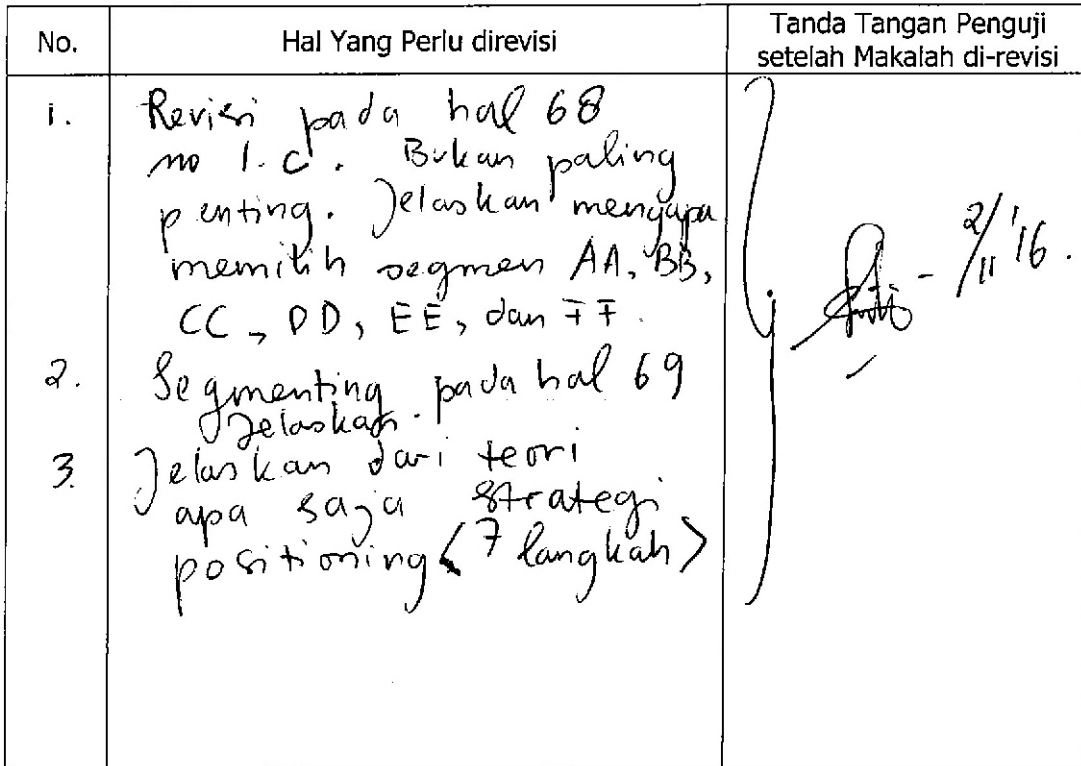 No.
Hal Yang Perlu direvisi
Tanda Tangan Penguji
setelah Makalah di-revisi
1.
Revisi pada hal 68
no 1. C. Bukan paling
penting. Jelaskan mengapa
memilih segmen AA, BB,
CC, DD, EE, dan FF.
2.
Segmenting pada hal 69
Jelaskan.
3.
Jelaskan dari teori
apa saja strategi
positioning <7 langkah>
2/11 '16.